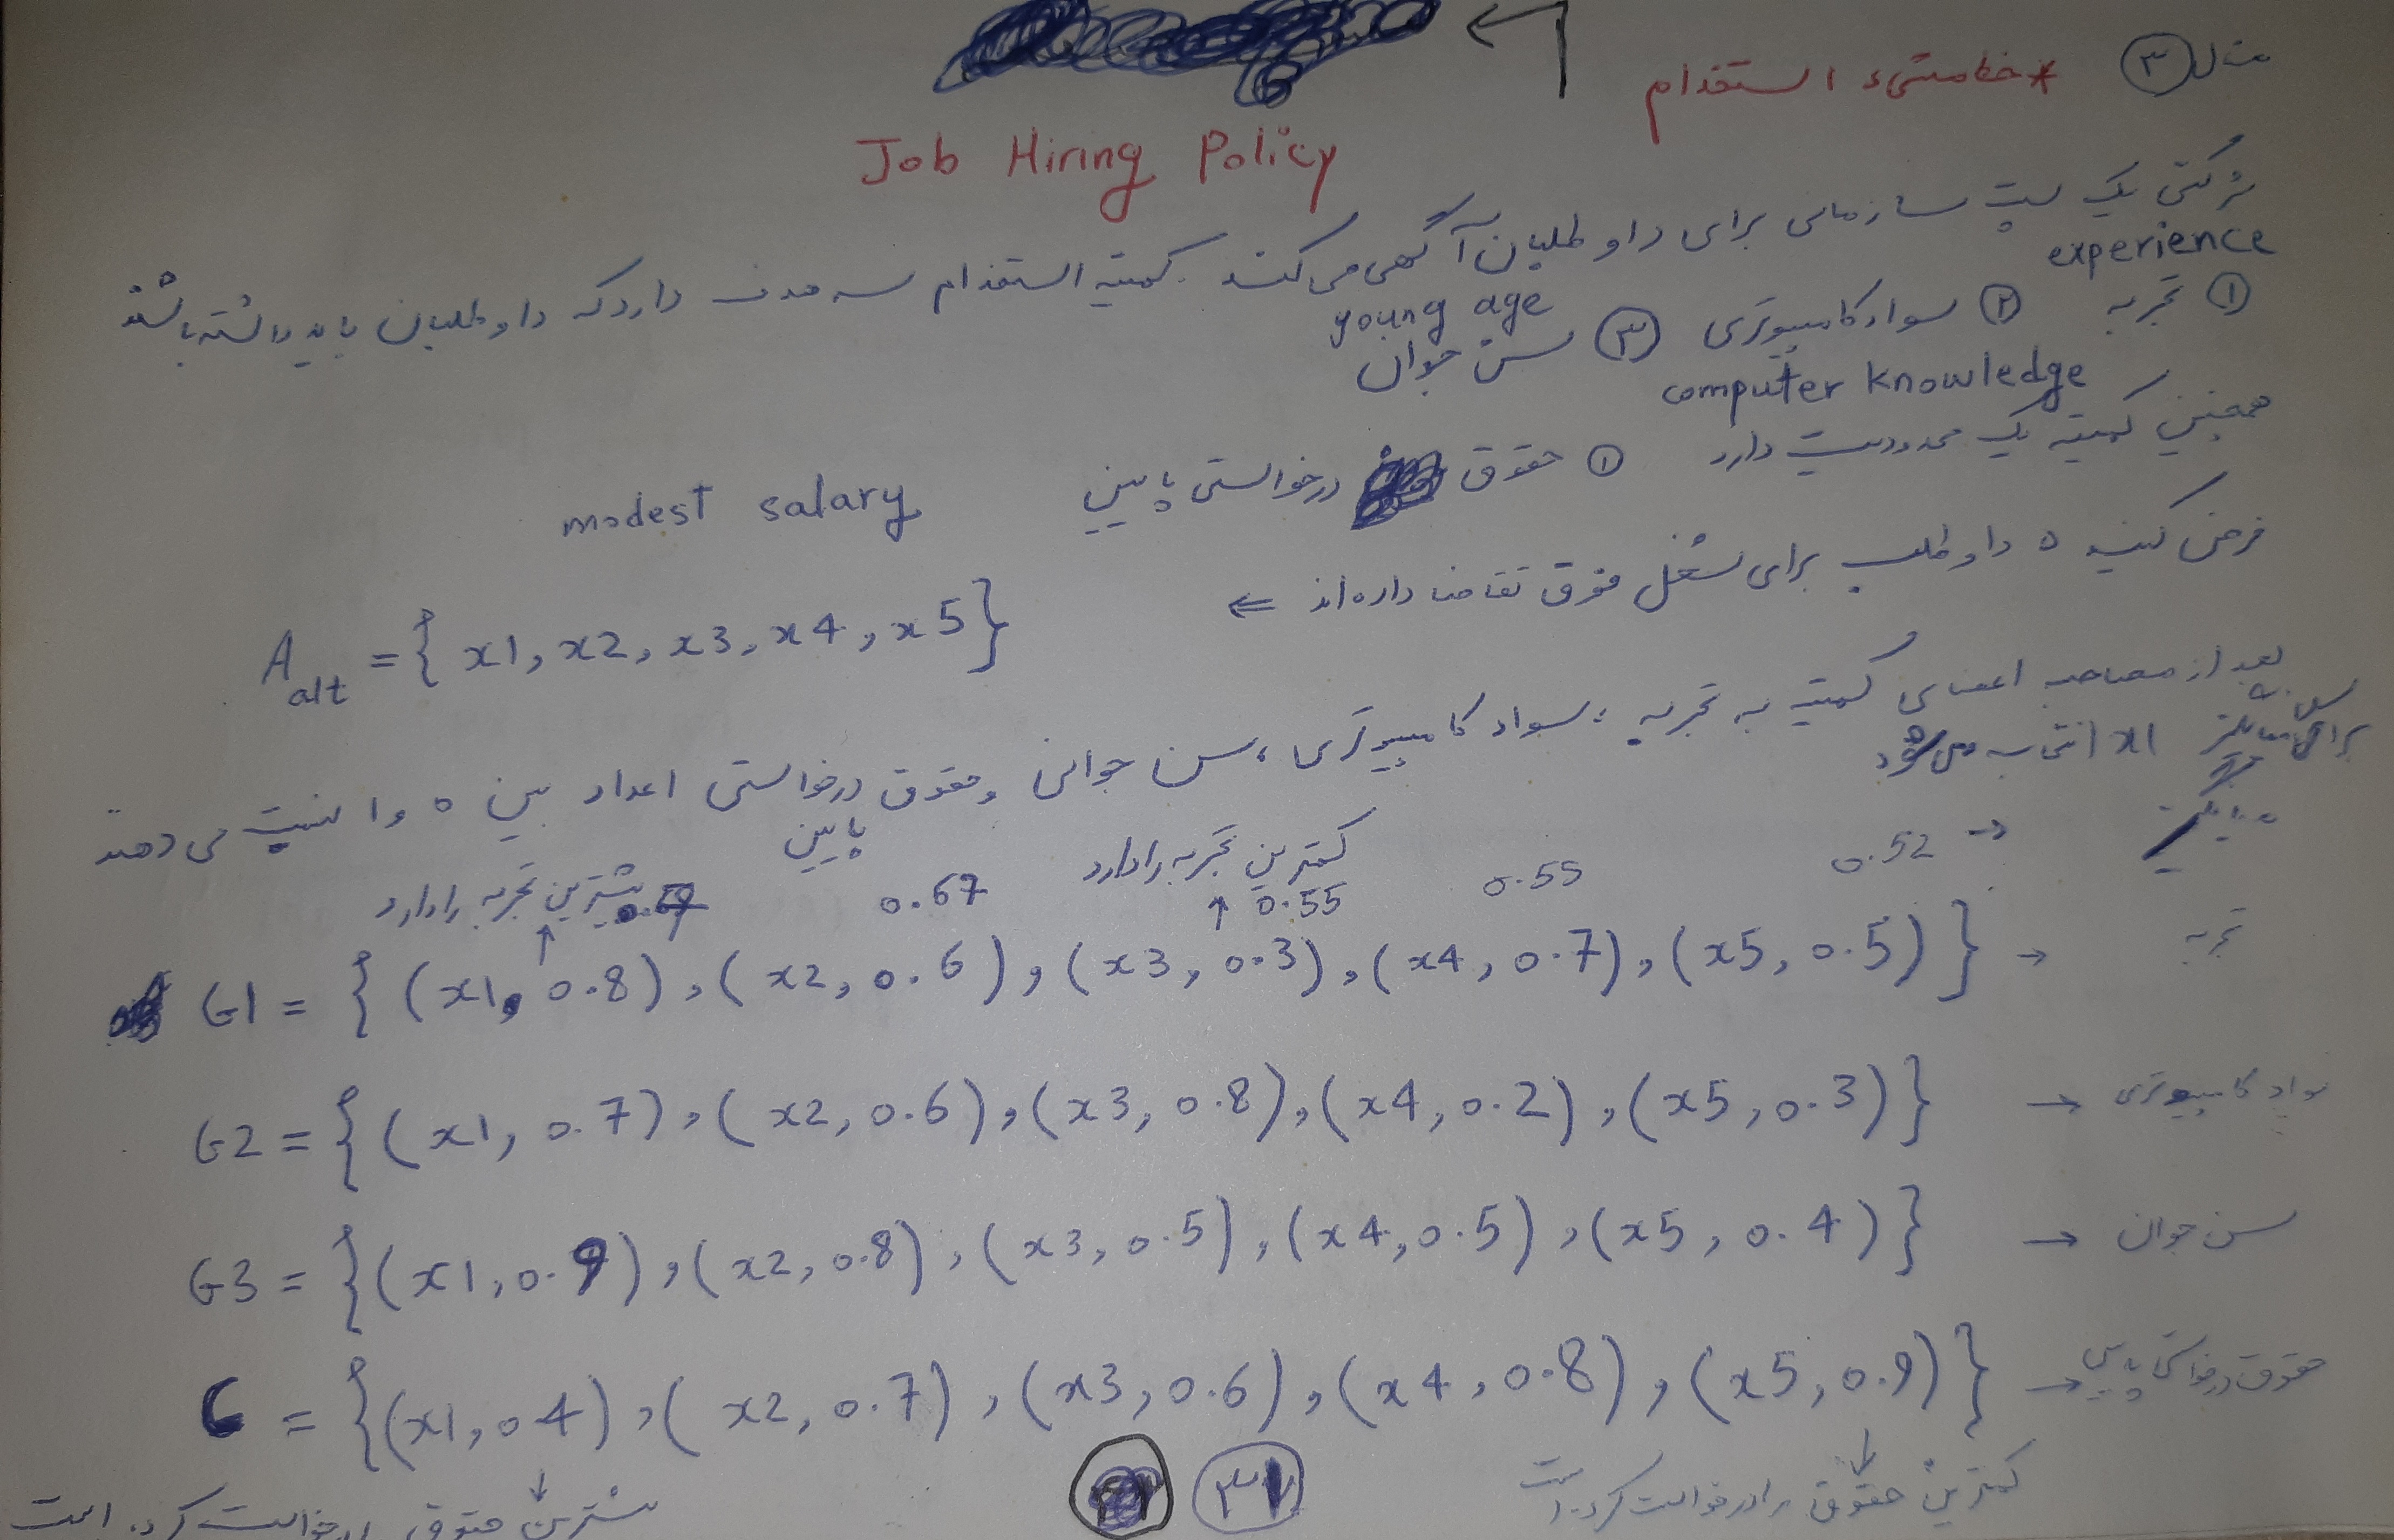 مثال ۳ * خط مشیء استخدام
Job Hiring Policy
شرکتی یک پست سازمانی برای داوطلبان آگهی می کند. کمیته استخدام سه هدف دارد که داوطلبان باید داشته باشند
experience
① تجربه ② سواد کامپیوتری ③ سن جوان
young age
computer knowledge
همچنین کمیته یک محدودیت دارد ① حقوق درخواستی پایین modest salary
فرض کنید ۵ داوطلب برای شغل فوق تقاضا داده اند ⇐
A alt = { x1, x2, x3, x4, x5}
بعد از مصاحبه اعضای کمیته به تجربه، سواد کامپیوتری، سن جوان و حقوق درخواستی اعداد بین ۰ و ۱ نسبت می دهند
پایین
x1 انتخاب می شود
بیشترین تجربه را دارد 0.67 کمترین تجربه را دارد 0.55 0.55 0.52 →
G1 = { (x1, 0.8), (x2, 0.6), (x3, 0.3), (x4, 0.7), (x5, 0.5) } → تجربه
G2 = {(x1, 0.7), (x2, 0.6), (x3, 0.8), (x4, 0.2), (x5, 0.3)} → سواد کامپیوتری
G3 = {(x1, 0.9), (x2, 0.8), (x3, 0.5), (x4, 0.5), (x5, 0.4)} → سن جوان
C = {(x1, 0.4), (x2, 0.7), (x3, 0.6), (x4, 0.8), (x5, 0.9)} → حقوق درخواستی پایین
بیشترین حقوق درخواست کرده است
کمترین حقوق را درخواست کرده است